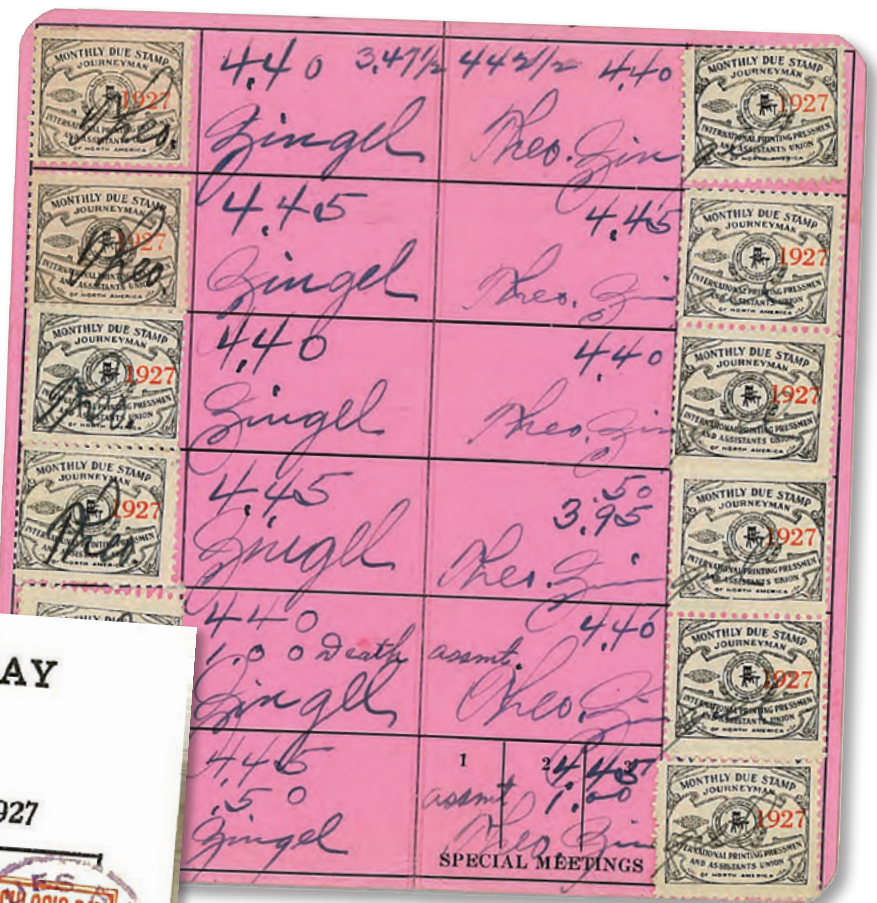 MONTHLY DUE STAMP
JOURNEYMAN
1927
Theo.
INTERNATIONAL PRINTING PRESSMEN
AND ASSISTANTS UNION
OF NORTH AMERICA
4.40 3.47 1/2
Zingel
442 1/2 4.40
Theo. Zin
MONTHLY DUE STAMP
JOURNEYMAN
1927
INTERNATIONAL PRINTING PRESSMEN
AND ASSISTANTS UNION
OF NORTH AMERICA
MONTHLY DUE STAMP
JOURNEYMAN
1927
Theo.
INTERNATIONAL PRINTING PRESSMEN
AND ASSISTANTS UNION
OF NORTH AMERICA
4.45
Zingel
4.45
Theo. Zin
MONTHLY DUE STAMP
JOURNEYMAN
1927
INTERNATIONAL PRINTING PRESSMEN
AND ASSISTANTS UNION
OF NORTH AMERICA
MONTHLY DUE STAMP
JOURNEYMAN
1927
Theo.
INTERNATIONAL PRINTING PRESSMEN
AND ASSISTANTS UNION
OF NORTH AMERICA
4.40
Zingel
4.40
Theo. Zin
MONTHLY DUE STAMP
JOURNEYMAN
1927
INTERNATIONAL PRINTING PRESSMEN
AND ASSISTANTS UNION
OF NORTH AMERICA
MONTHLY DUE STAMP
JOURNEYMAN
1927
Theo
INTERNATIONAL PRINTING PRESSMEN
AND ASSISTANTS UNION
OF NORTH AMERICA
4.45
Zingel
.50
3.95
Theo. Zin
MONTHLY DUE STAMP
JOURNEYMAN
1927
INTERNATIONAL PRINTING PRESSMEN
AND ASSISTANTS UNION
OF NORTH AMERICA
MONTHLY DUE STAMP
440
1.00 Death assmt.
Zingel
4.40
Theo. Zin
MONTHLY DUE STAMP
JOURNEYMAN
1927
INTERNATIONAL PRINTING PRESSMEN
AND ASSISTANTS UNION
OF NORTH AMERICA
4.45
.50
Zingel
1 2 3
4.45
assmt 1.00
Theo Zin
SPECIAL MEETINGS
MONTHLY DUE STAMP
JOURNEYMAN
1927
INTERNATIONAL PRINTING PRESSMEN
AND ASSISTANTS UNION
OF NORTH AMERICA
AY
927